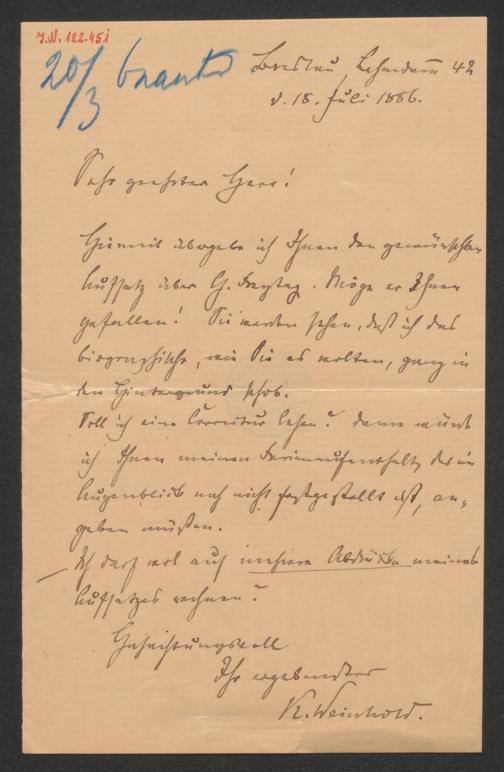 J.N. 122.451
20/3 beantw
Breslau, Lehmdamm 42
d. 18. Juli 1886.
Sehr geehrter Herr!
Hiermit übergebe ich Ihnen den gewünschten
Aufsatz über G. Freytag. Möge er Ihnen
gefallen! Sie werden sehen, daß ich das
biographische, wie Sie es wollten, ganz in
den Hintergrund schob.
Soll ich eine Correctur lesen? Dann würde
ich Ihnen meinen Ferienaufenthalt, der im
Augenblick noch nicht festgestellt ist, an-
geben müssen.
Ich darf wol auf mehrere Abdrücke meines
Aufsatzes rechnen?
Hochachtungsvoll
Ihr ergebenster
K. Weinhold.